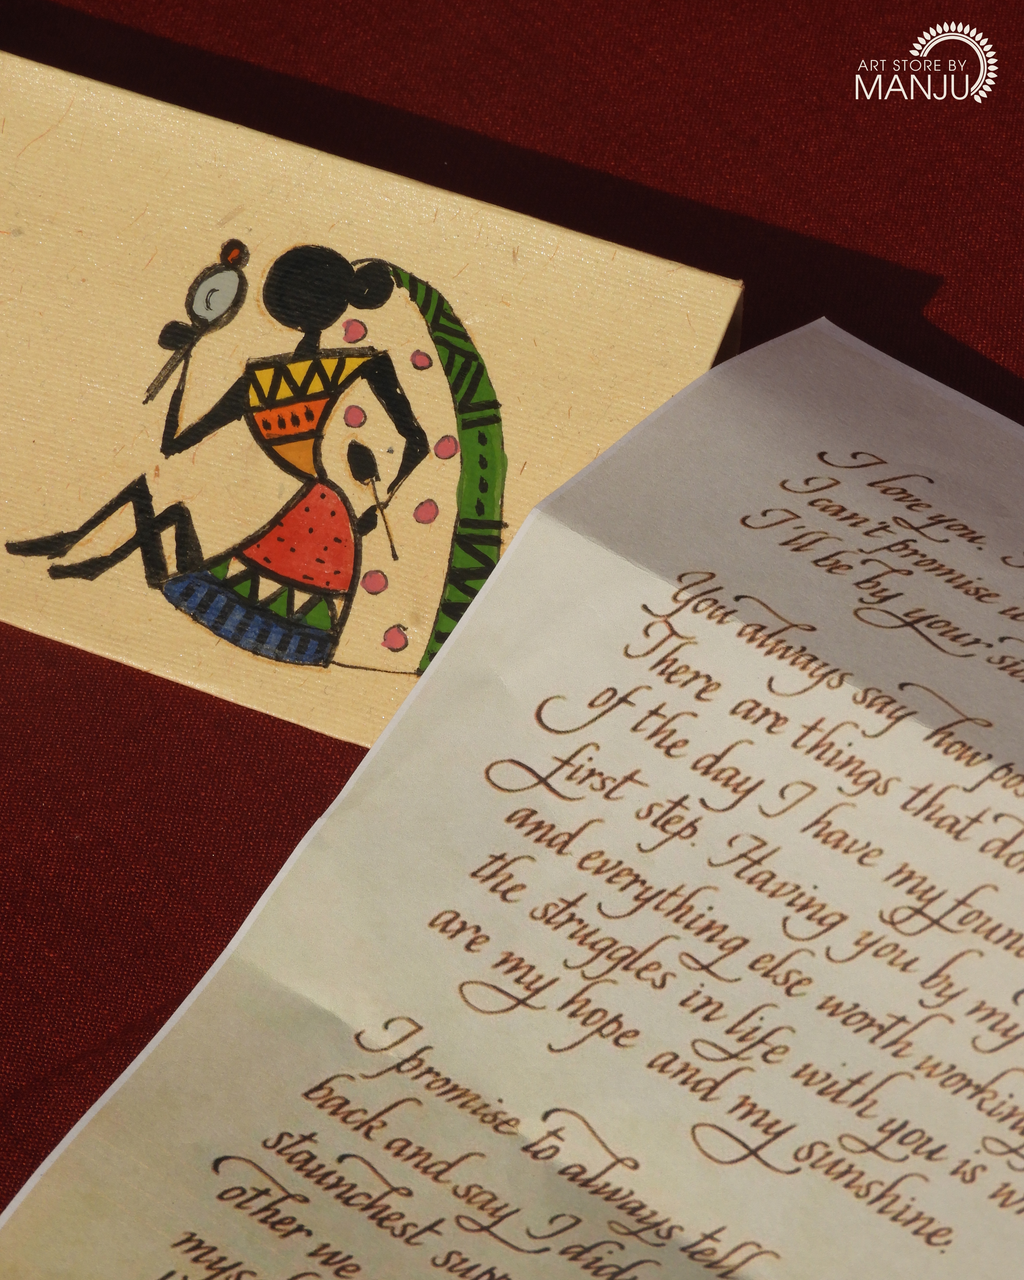 ART STORE BY
MANJU
I love you.
I can't promise
I'll be by your
You always say how
There are things that
of the day I have my
first step. Having you by my
and everything else worth working
the struggles in life with you is
are my hope and my sunshine.
I promise to always tell
back and say I
staunchest
other we